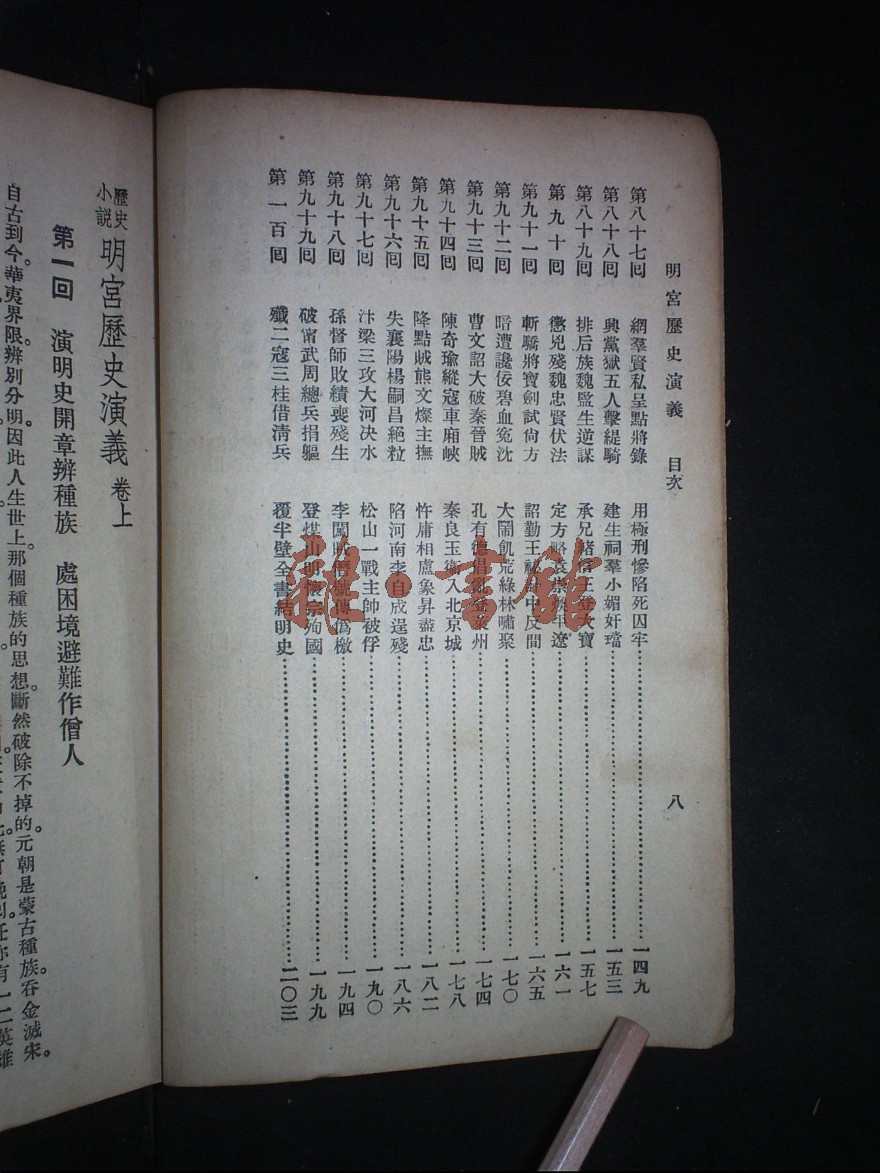 明宮歷史演義 目次 八
第八十七囘 網羣賢私呈點將錄 用極刑慘陷死囚牢 一四九
第八十八囘 興黨獄五人擊緹騎 建生祠羣小媚奸璫 一五三
第八十九囘 排后族魏監生逆謀 承兄緒信王登大寶 一五七
第九十囘 懲兇殘魏忠賢伏法 定方略袁崇煥平遼 一六一
第九十一囘 斬驕將寶劍試尙方 詔勤王祕計中反間 一六五
第九十二囘 暗遭讒佞碧血冤沈 大鬧飢荒綠林嘯聚 一七〇
第九十三囘 曹文詔大破秦晉賊 孔有德倡亂登萊州 一七四
第九十四囘 陳奇瑜縱寇車廂峽 秦良玉衞入北京城 一七八
第九十五囘 降點賊熊文燦主撫 忤庸相盧象昇盡忠 一八二
第九十六囘 失襄陽楊嗣昌絕粒 陷河南李自成逞殘 一八六
第九十七囘 汴梁三攻大河决水 松山一戰主帥被俘 一九〇
第九十八囘 孫督師敗績喪殘生 李闖賊僭號傳僞檄 一九四
第九十九囘 破甯武周總兵捐軀 登煤山明懷宗殉國 一九九
第一百囘 殲二寇三桂借淸兵 覆半壁全書結明史 二〇三
龍·書館
歷史小說 明宮歷史演義 卷上
第一回 演明史開章辨種族 處困境避難作僧人
自古到今。華夷界限。辨別分明。因此人生世上。那個種族的思想。斷然破除不掉的。元朝是蒙古種族。吞金滅宋。